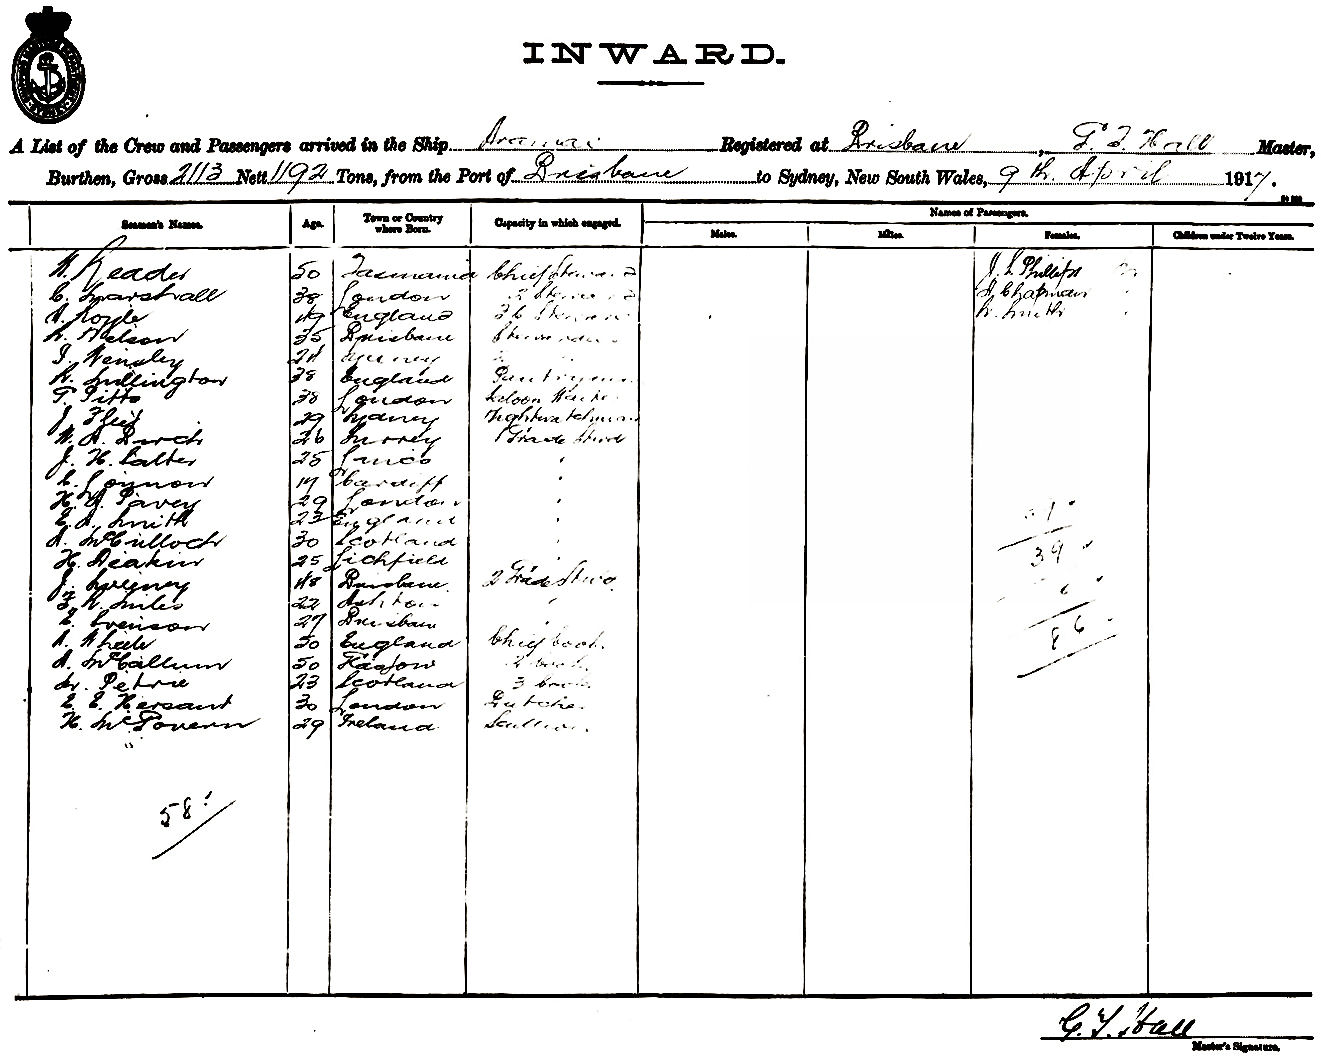 INWARD.
A List of the Crew and Passengers arrived in the Ship Registered at Brisbane, G. T. Hall Master,
Burthen, Gross 2113 Nett 1192 Tons, from the Port of Brisbane to Sydney, New South Wales, 9th April 1917.
Seamen's Names. Age. Town or Country where Born. Capacity in which engaged. Names of Passengers.
Males. Males. Females. Children under Twelve Years.
W. Reader 50 Tasmania Chief Steward J. L Phillips
C. Marshall 38 London 2 Steward A Chapman
A. Royle 49 England 3 Steward Smith
Nelson 35 Brisbane
Wensley 24
Millington 38 England Pantryman
G. Pitts 38 London Saloon Waiter
J. 29 Sydney Nightwatchman
W. A. Burch 26 Surrey 1 Grade Stwd
J. H. Salter 25 "
19 Cardiff "
H. A. Pavey 29 London "
E. A. Smith 23 England "
A. McCulloch 30 Scotland "
H. Deakin 25 Lichfield
J. Sweeney 48 Brisbane 2 Grade Stwd
Miles 22 Ashton "
E. Evenson 27 Brisbane
A. Wheele 50 England Chief Cook
A. McCallum 50 2 Cook
Petrie 23 Scotland 3 Cook
E. E. Hersant 30 London Butcher
H. McGovern 29 Ireland Scullion
39
86
58
G. T. Hall
Master's Signature.